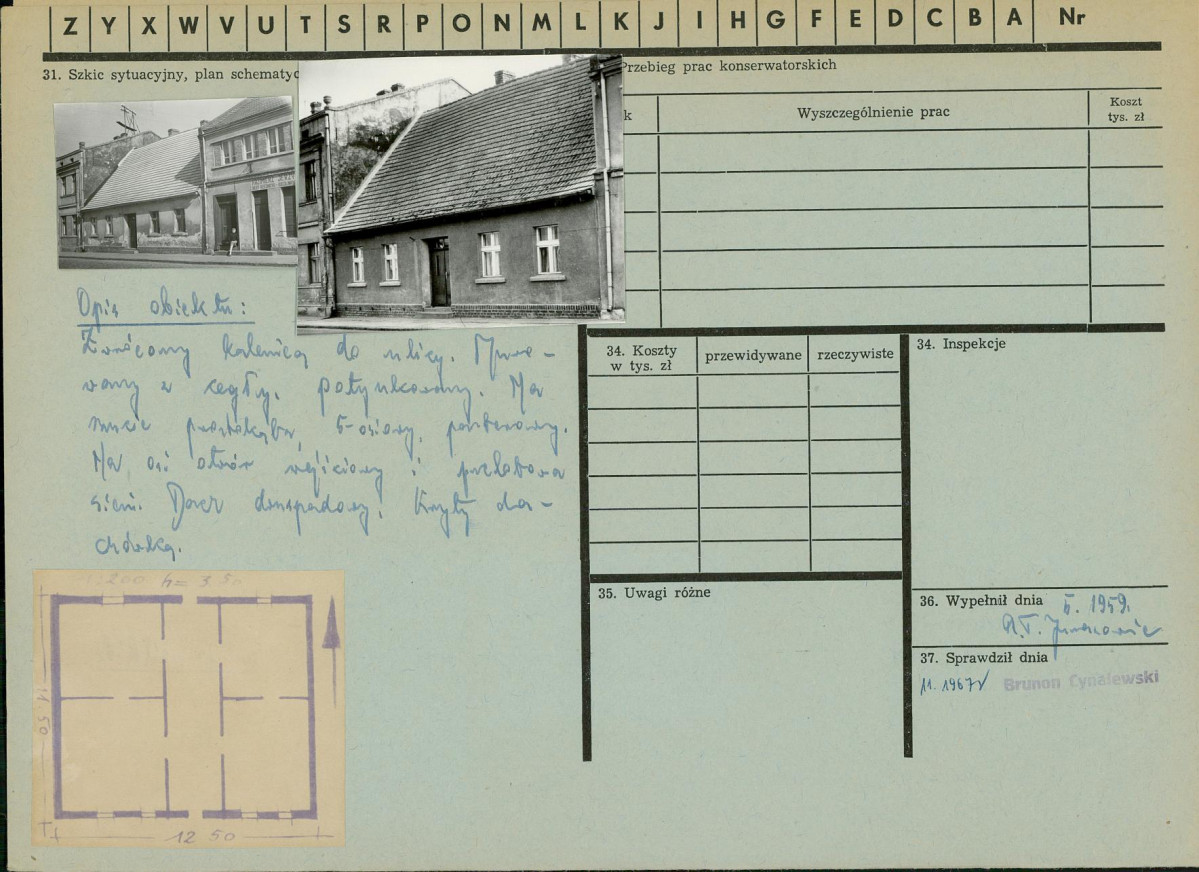 Z Y X W V U T S R P O N M L K J I H G F E D C B A Nr
31. Szkic sytuacyjny, plan schematyc
Przebieg prac konserwatorskich
k
Wyszczególnienie prac
Koszt
tys. zł
Opis obiektu:
Zwrócony kalenicą do ulicy. Muro-
wany z cegły, potynkowany. Na
rzucie prostokąta, 5-osiowy, parterowy.
Na osi otwór wejściowy i przelotowa
sień. Dach dwuspadowy, kryty da-
chówką.
34. Koszty
w tys. zł
przewidywane
rzeczywiste
34. Inspekcje
35. Uwagi różne
36. Wypełnił dnia
1959.
37. Sprawdził dnia
11. 1967
Brunon Cynalewski
1:200 h= 3 50
11 50
12 50